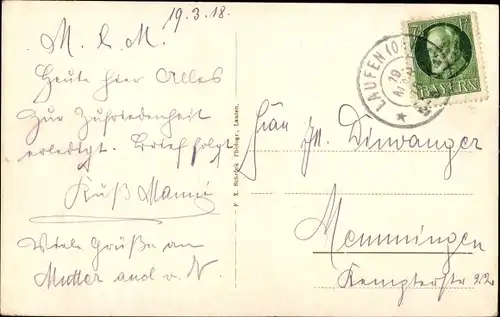 19.3.18.
M. L. M.
Heute hier Alles
zur Zufriedenheit
erledigt. Brief folgt
Kuß Manni
Viele Grüße an
Mutter and v. N.
F. X. Schröck Photogr., Laufen.
LAUFEN (O
19
7½
BAYERN
Frau Dinwanger
Memmingen
Kempterstr 22